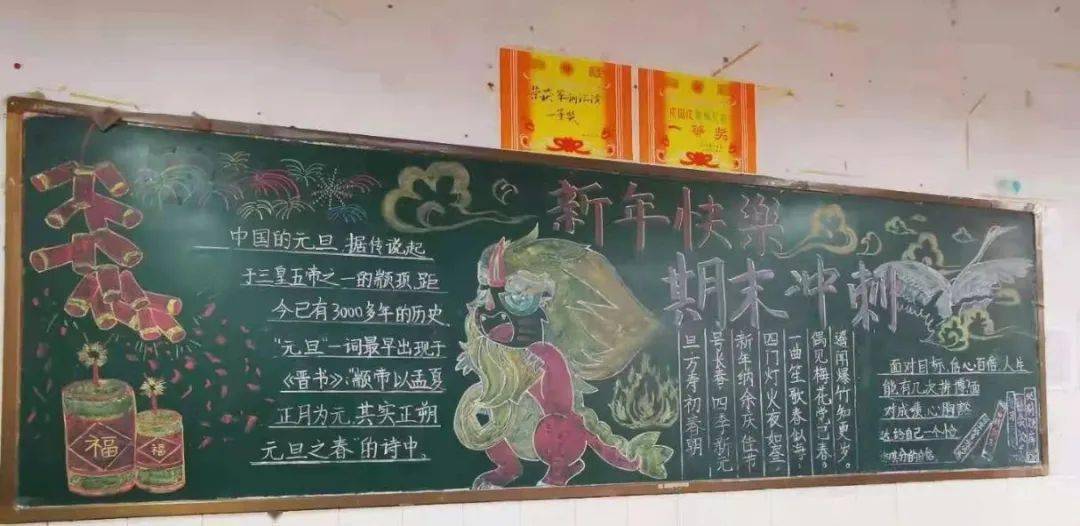 荣获
一等奖
一等奖
新年快樂
期末冲刺
中国的元旦,据传说起
于三皇五帝之一的颛顼,距
今已有3000多年的历史
"元旦"一词最早出现于
《晋书》:"颛帝以孟夏
正月为元,其实正朔
元旦之春"的诗中。
福
福
遥闻爆竹知更岁,
偶见梅花觉已春。
一曲笙歌春似海,
四门灯火夜如
新年纳余庆佳节
号长春四季新元
旦万寿初春朝
面对目标,信心百倍,人生
能有几次拼搏 面
对成绩,心胸
达 给自己一个恰